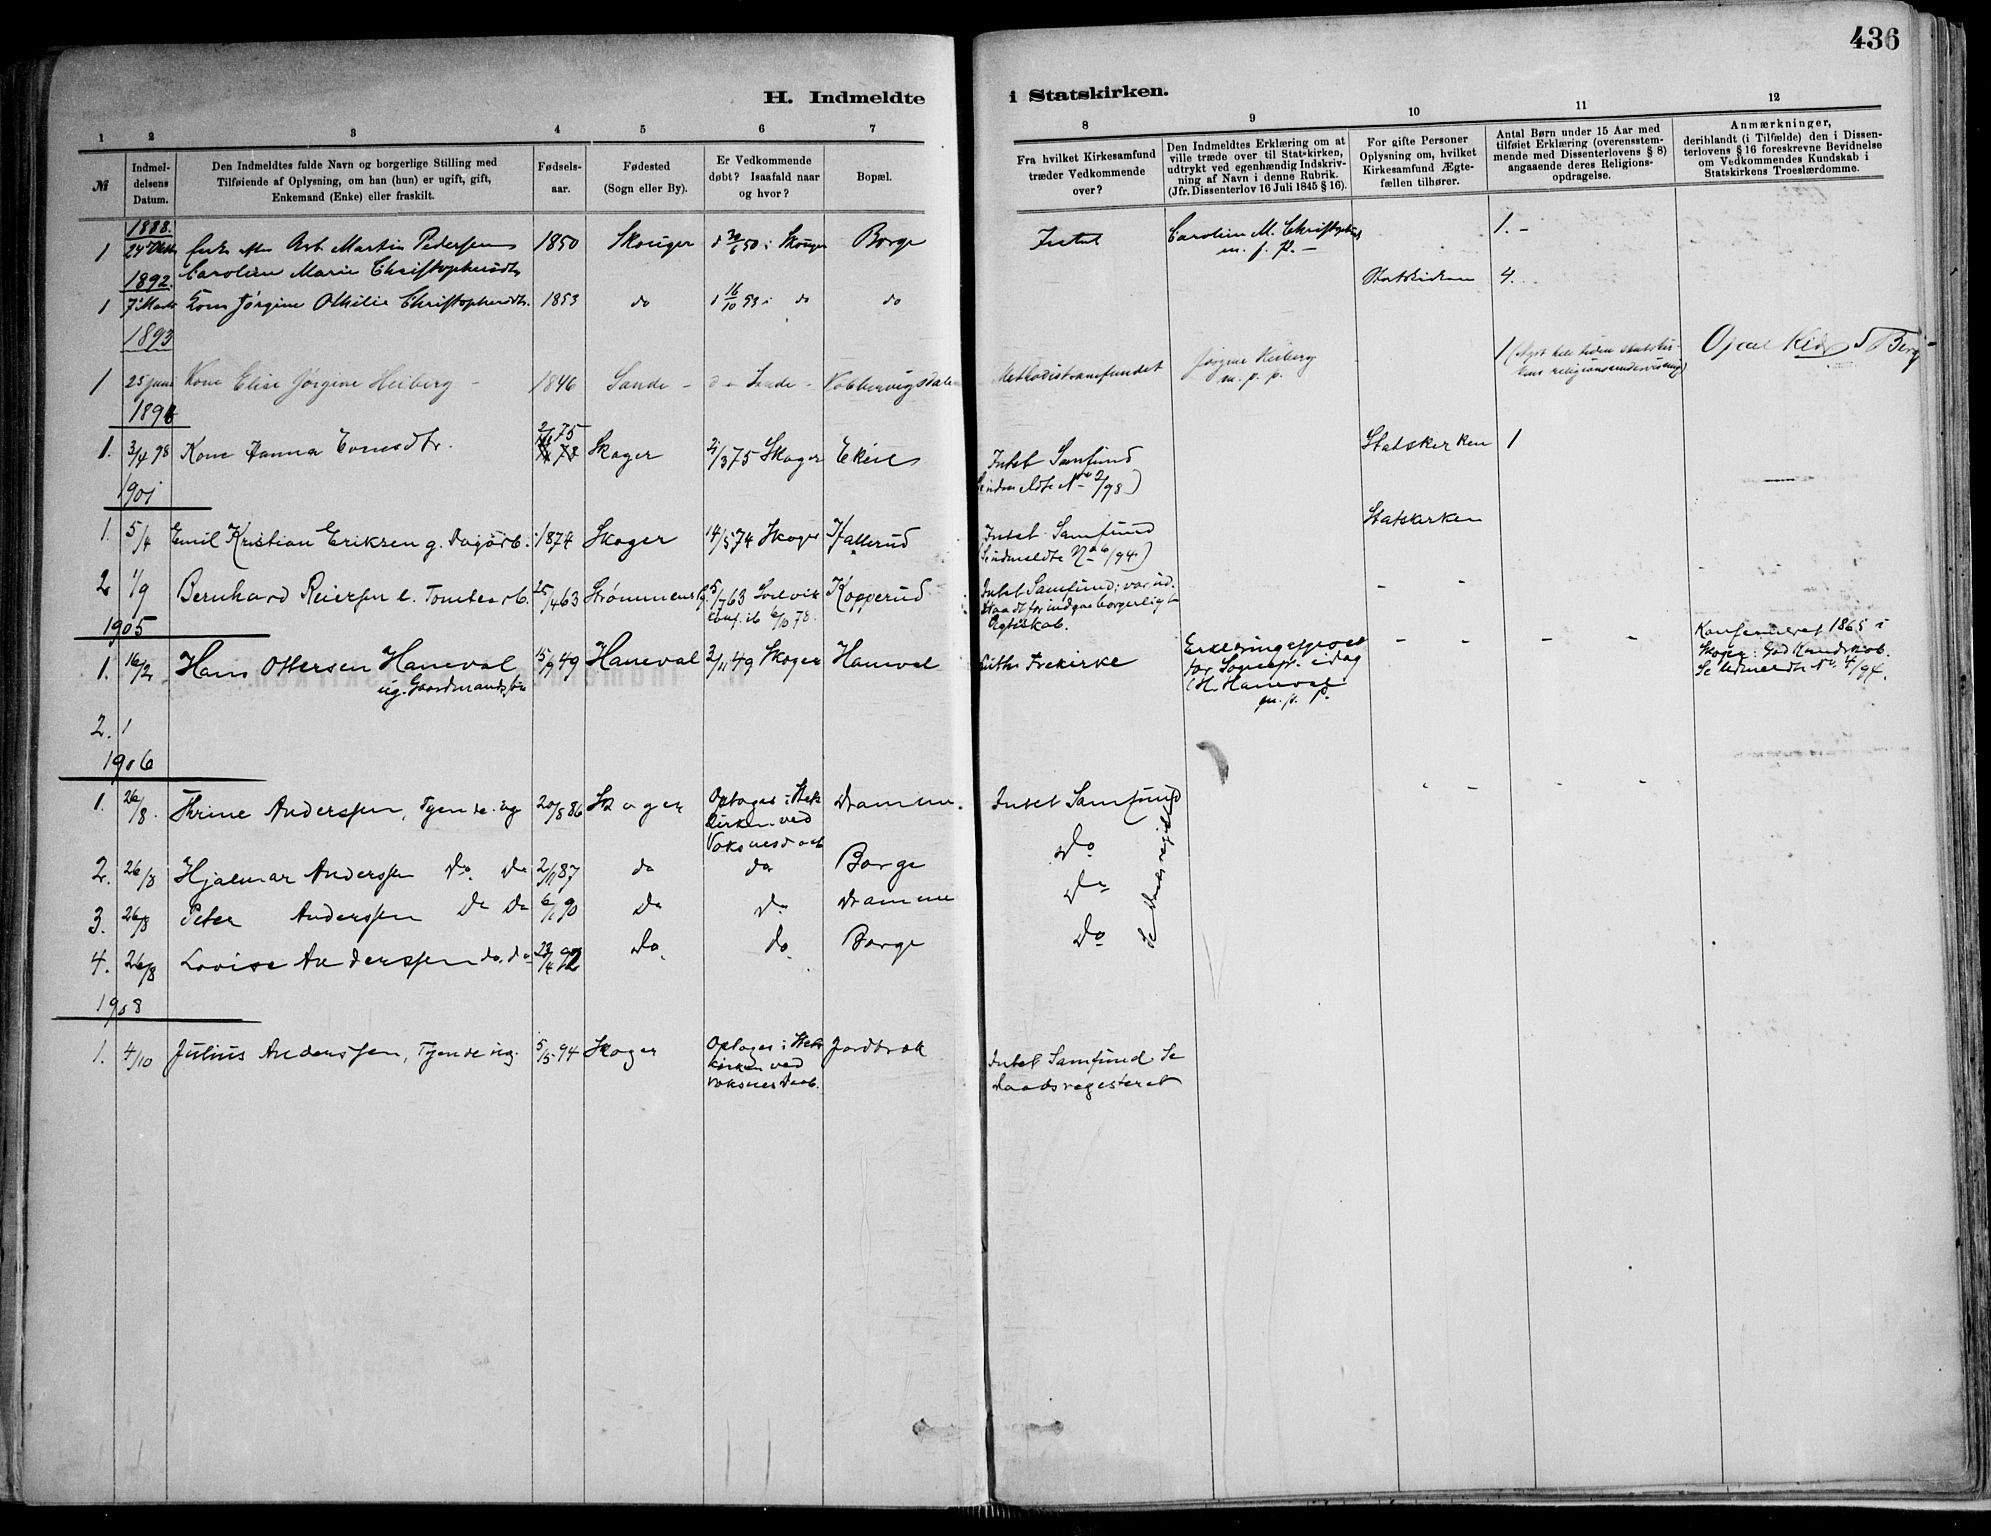 436
H. Indmeldte i Statskirken.
1 2 3 4 5 6 7 8 9 10 11 12
№
Indmel-
delsens
Datum.
Den Indmeldtes fulde Navn og borgerlige Stilling med
Tilføiende af Oplysning, om han (hun) er ugift, gift,
Enkemand (Enke) eller fraskilt.
Fødsels-
aar.
Fødested
(Sogn eller By).
Er Vedkommende
døbt? Isaafald naar
og hvor?
Bopæl.
Fra hvilket Kirkesamfund
træder Vedkommende
over?
Den Indmeldtes Erklæring om at
ville træde over til Statskirken,
udtrykt ved egenhændig Indskriv-
ning af Navn i denne Rubrik.
(Jfr. Dissenterlov 16 Juli 1845 § 16).
For gifte Personer
Oplysning om, hvilket
Kirkesamfund Ægte-
fællen tilhører.
Antal Børn under 15 Aar med
tilføiet Erklæring (overensstem-
mende med Dissenterlovens § 8)
angaaende deres Religions-
opdragelse.
Anmærkninger,
deriblandt (i Tilfælde) den i Dissen-
terlovens § 16 foreskrevne Bevidnelse
om Vedkommendes Kundskab i
Statskirkens Troeslærdomme.
1888.
1 Enke efter Arb. Martin Pedersen 1850 Skouger d 30/6 50 i Skouger Borge Intet Carolin M. Christophers 1. -
Caroline Marie Christophersdtr m. f. P. -
1892.
1 7 Marts Kone Jørgine Othilie Christophersdtr. 1853 do d 16/10 53 i do do Statskirken 4.
1893
1 25 Kone Elise Jørgine Heiberg - 1846 Sande - d - Sande - Kobbervigsdalen Methodistsamfundet Jørgine Heiberg
m. p. p.
1 religionsundervisning)
1898
1. 3/4 98 Kone Hanna Evensdtr. 2/1 75 Skoger 21/3 75 Skoger Ekeli Intet Samfund Statskirken 1
(Se udmeldte No 2/98)
1901
1. 5/4 Emil Kristian Eriksen g. Dagarb. 1874 Skoger 14/5 74 Skoger Hallerud Intet Samfund Statskirken
(Se udmeldte No 6/94)
2 1/9 Bernhard Reiersen e. Tomtearb. 25/4 63 Strømmen 5/7 63 Svelvik Kopperud Intet Samfund; var ud-
conf. ib 6/10 78. traadt for indgaa borgerligt
Ægteskab.
1905
1. 16/2 Hans Ottersen Haneval 15/9 49 Haneval 2/11 49 Skoger Haneval Luth. Frikirke Erklæring afgivet
ug. Gaardmandssøn for Sognepr. idag
(H. Haneval
m. p. p.
Konfirmeret 1865 i
Skoger. God Kundskab.
Se Udmeldte No 4/94.
2. 1
1906
1. 26/8. Thrine Anderssen, Tjende. ug 20/5 86 Skoger Optages i Stats- Drammen. Intet Samfund
kirken ved
Voksnesdaab
2. 26/8 Hjalmar Anderssen Do. Do 2/11 87 do do Borge Do
3. 26/8 Peter Anderssen Do Do 6/1 90 Do Do Drammen Do
4. 26/8 Lovise Anderssen do. do 23/4 92 Do Do. Borge Do
Se Daabsregistret
1908
1. 4/10 Julius Anderssen, Tjende ug. 5/5 94 Skoger Optages i Stats- Jordbræk Intet Samfund Se
kirken ved Daabsregisteret
voksnes Daab.